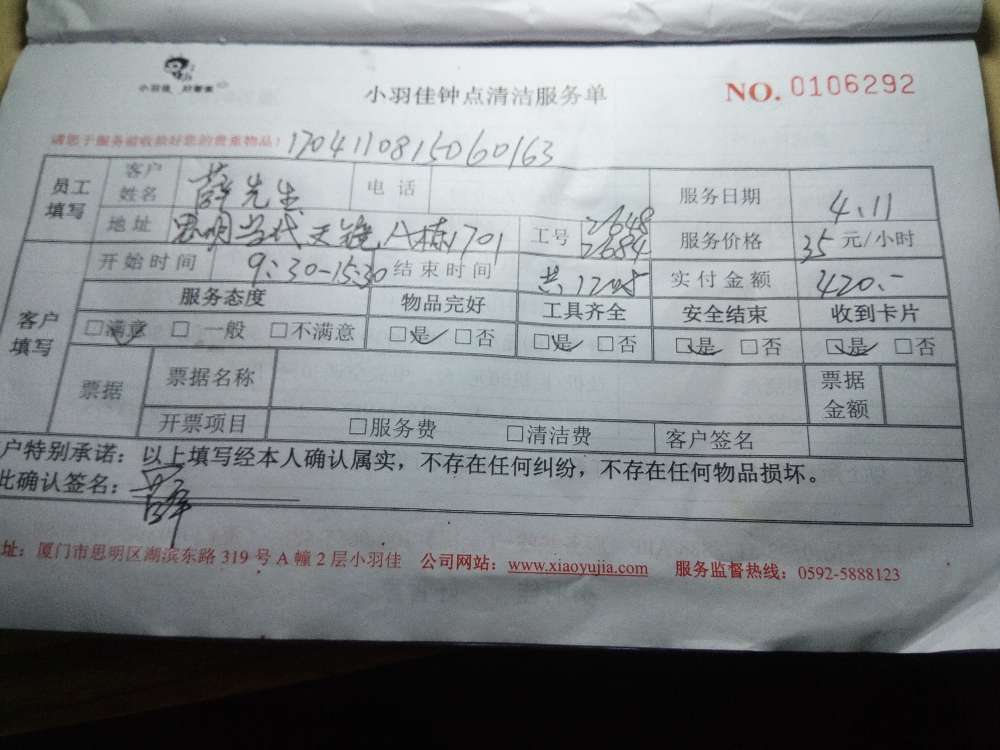 小羽佳 好管家
小羽佳钟点清洁服务单
NO. 0106292
请您于服务前收捡好您的贵重物品！ 1704110815060163
员工填写 客户姓名 薛先生 电话 服务日期 4.11
地址 思明当代天境八栋1701 工号 2648 2684 服务价格 35元/小时
开始时间 9:30-15:30 结束时间 共12小时 实付金额 420.-
客户填写 服务态度 物品完好 工具齐全 安全结束 收到卡片
□满意 □一般 □不满意 □是 □否 □是 □否 □是 □否 □是 □否
票据 票据名称 票据金额
开票项目 □服务费 □清洁费 客户签名
户特别承诺：以上填写经本人确认属实，不存在任何纠纷，不存在任何物品损坏。
此确认签名： 薛
址：厦门市思明区湖滨东路 319 号 A 幢 2 层小羽佳 公司网站：www.xiaoyujia.com 服务监督热线：0592-5888123